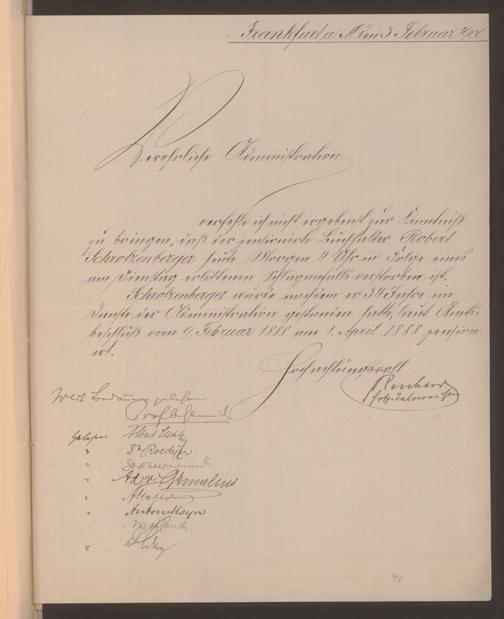 Frankfurt a M. den 3 Februar
Verehrliche Administration
verfehle ich nicht ergebenst zur Kenntniß
zu bringen, daß der pensionirte Buchhalter Robert
Schrotzenberger heute Morgen 4 Uhr in Folge eines
am Dienstag erlittenen Schlaganfalls verstorben ist.
Schrotzenberger wurde nachdem er 34 Jahre im
Dienste der Administration gestanden hatte, laut Amts-
beschluß vom 9. Februar 1888 am 1. April 1888 pension-
irt.
Hochachtungsvoll
Reinhard
Mit Bedauern gelesen
gelesen
"
"
" Cornelius
"
" Anton Meyer
"
"